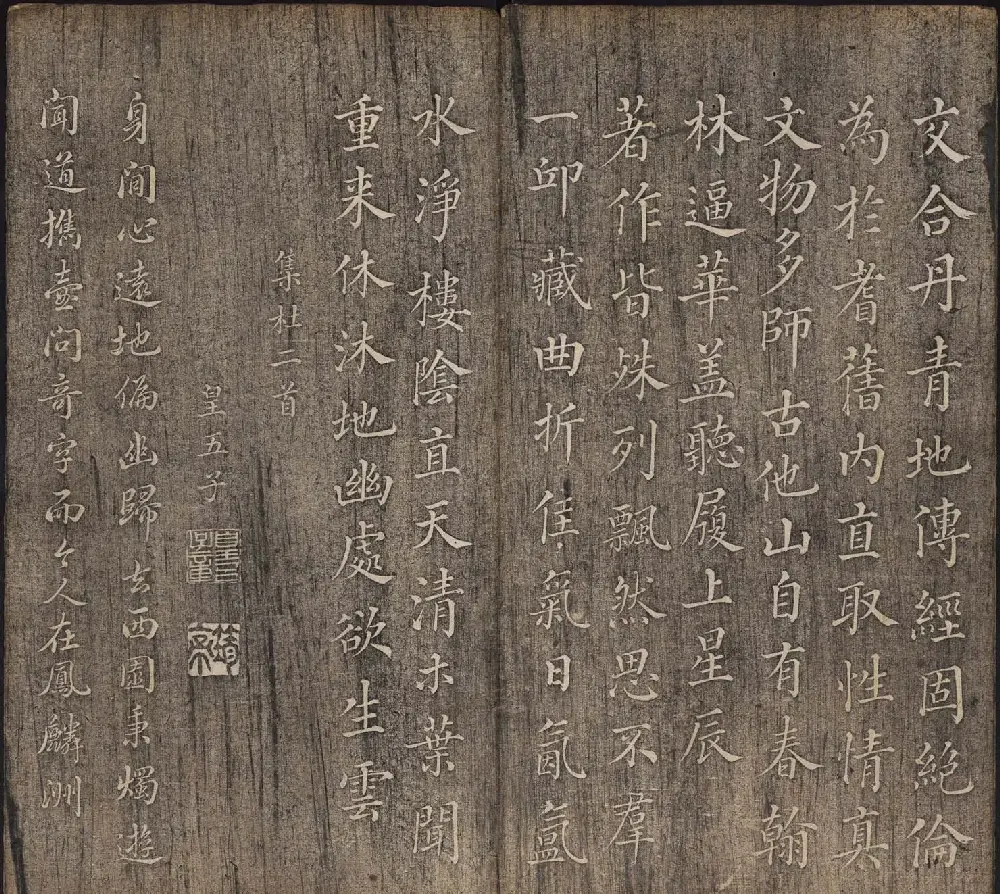 交合丹青地傳經固絕倫
為於耆舊內直取性情真
文物多師古他山自有春翰
林逼華盖聽履上星辰
著作皆殊列飄然思不羣
一邱藏曲折佳氣日氤氳
水淨樓陰直天清木葉聞
重来休沐地幽處欲生雲
集杜二首
皇五子
身閒心遠地偏幽歸去西園秉燭遊
聞道攜壺問奇字而今人在鳳麟洲